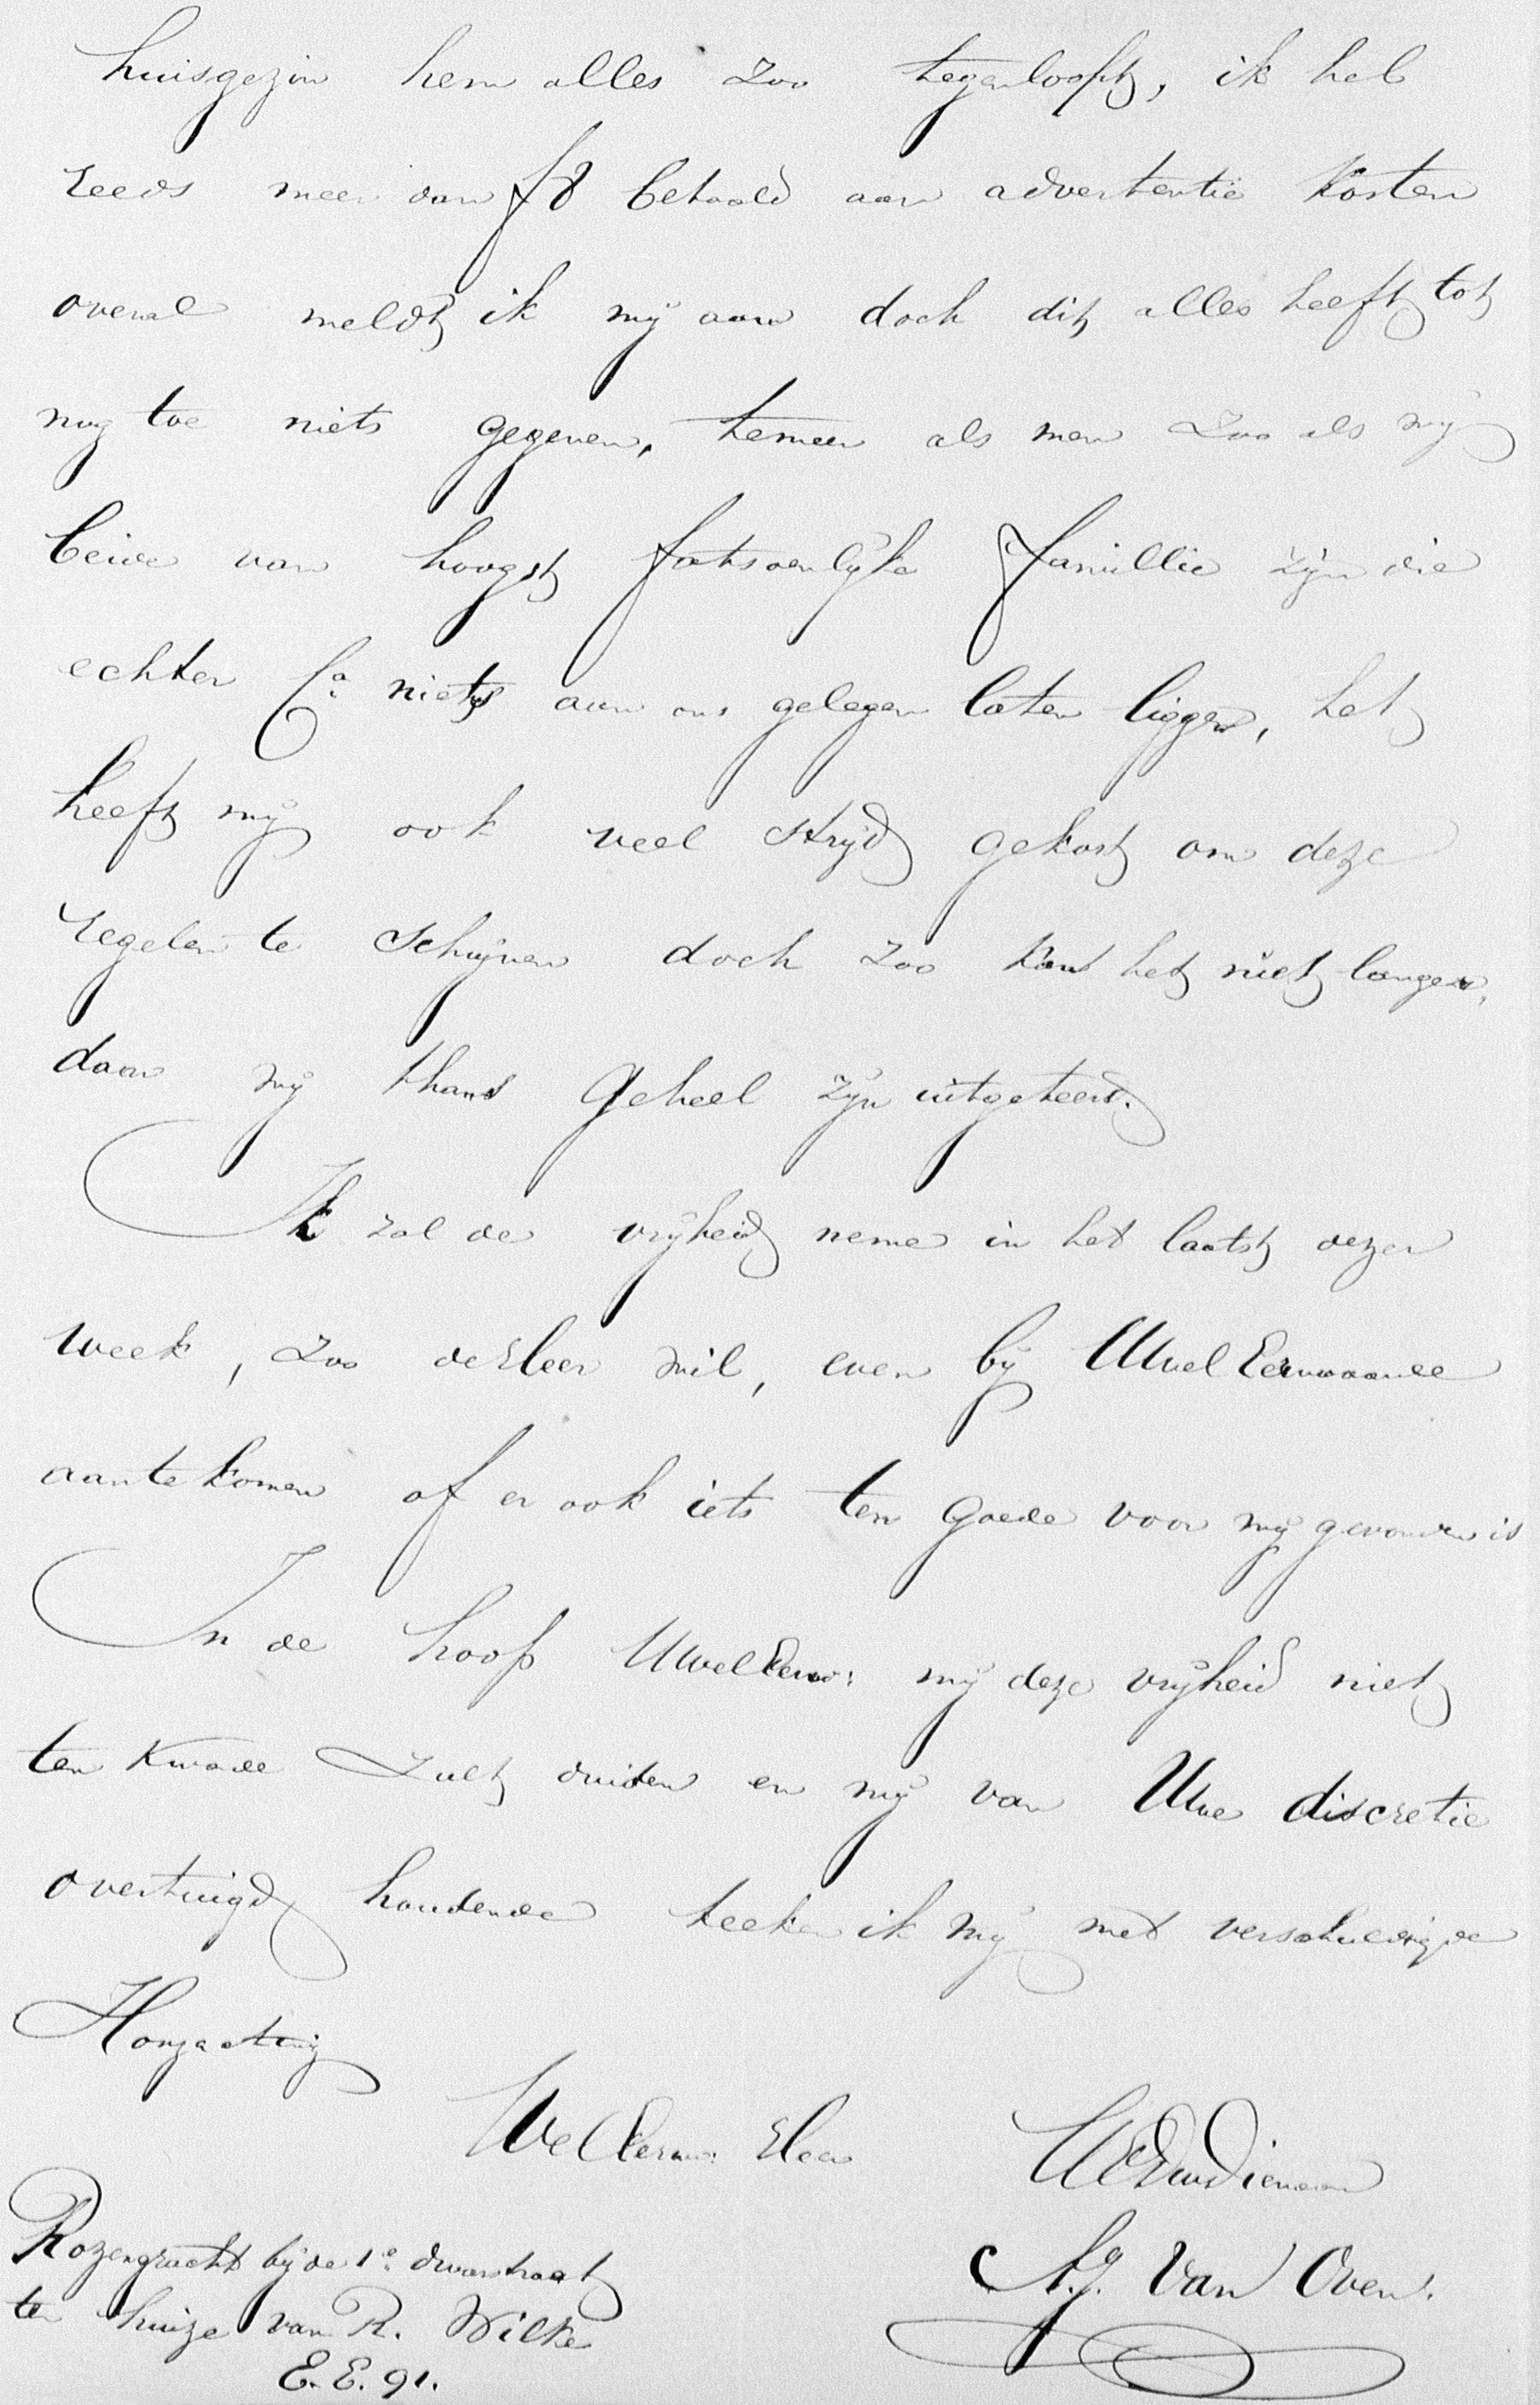 huisgezin hem alles zoo tegenloopt, ik heb
reeds meer dan f8 betaald aan advertentie kosten
overal meldt ik mij aan doch dit alles heeft tot
nog toe niets gegeven, temeer als men zoo als wij
beide van hoogst fatsoenlijke famillie zijn die
echter niets aan ons gelegen laten liggen, het
heeft mij ook veel strijd gekost om deze
regelen te schrijven doch zoo kan het niet langer,
daar wij thans geheel zijn uitgeteerd.
Ik zal de vrijheid neme in het laatst dezer
week, zoo de Heer wil, even bij UWel Eerwaarde
aante komen of er ook iets ten goede voor mij gevonden is
In de hoop UWelEerw: mij deze vrijheid niet
ten kwade zult duiden en mij van Uwe discretie
overtuigd houdende teeken ik mij met verschuldigde
Hoogachting
WelEerw: Heer UEDwDienaar
Rozengracht bij de 1e dwarsstraat
van Oven.
ten huize van R. Wilke
E.E. 91.